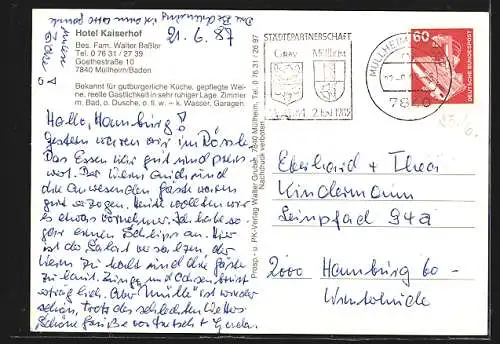 Hotel Kaiserhof
Bes. Fam. Walter Baßler
Tel. 0 76 31 / 27 39
Goethestraße 10
7840 Müllheim/Baden
Bekannt für gutbürgerliche Küche, gepflegte Wei-
ne, reelle Gastlichkeit in sehr ruhiger Lage. Zimmer
m. Bad, o. Dusche, o. fl. w. + k. Wasser, Garagen.
21.6.87
Hallo, Hamburg!
Gestern waren wir im Rössle.
Das Essen war gut und preis-
wert. Der Wein auch und
die anwesenden Gäste waren
gut gezogen. Heute wollten wir
es etwas vornehmer. Ich habe so-
gar einen Schlips an. Hier
ist der Salat versalzen der
Wein zu kalt und die Gäste
zu laut. Zunge und Ochsenbrust
erträglich. Aber "Mülle" ist wieder
schön, trotz des schlechten Wetters.
Schöne Grüße von
Prosp.- u. PK-Verlag Walter Gruber, 7840 Müllheim, Tel. 0 76 31 / 26 97
Nachdruck verboten.
STÄDTEPARTNERSCHAFT
Gray Müllheim
MÜLLHEIM
7840
60
DEUTSCHE BUNDESPOST
Eberhard + Thea
Kindermann
Leinpfad 94a
2000 Hamburg 60-
Winterhude